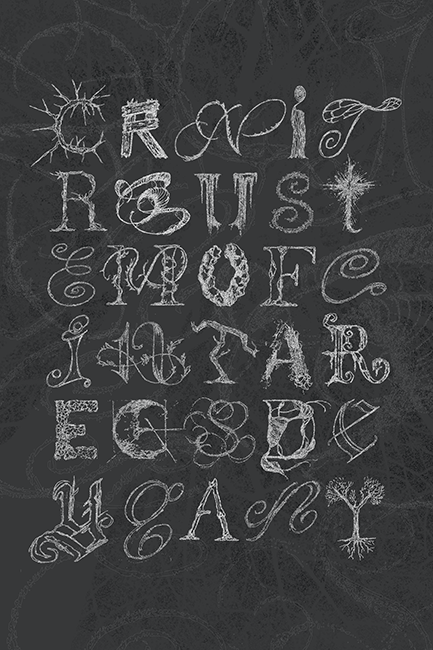 CRNIT
REUST
EMOFC
INTAR
ECSDE
YEANY